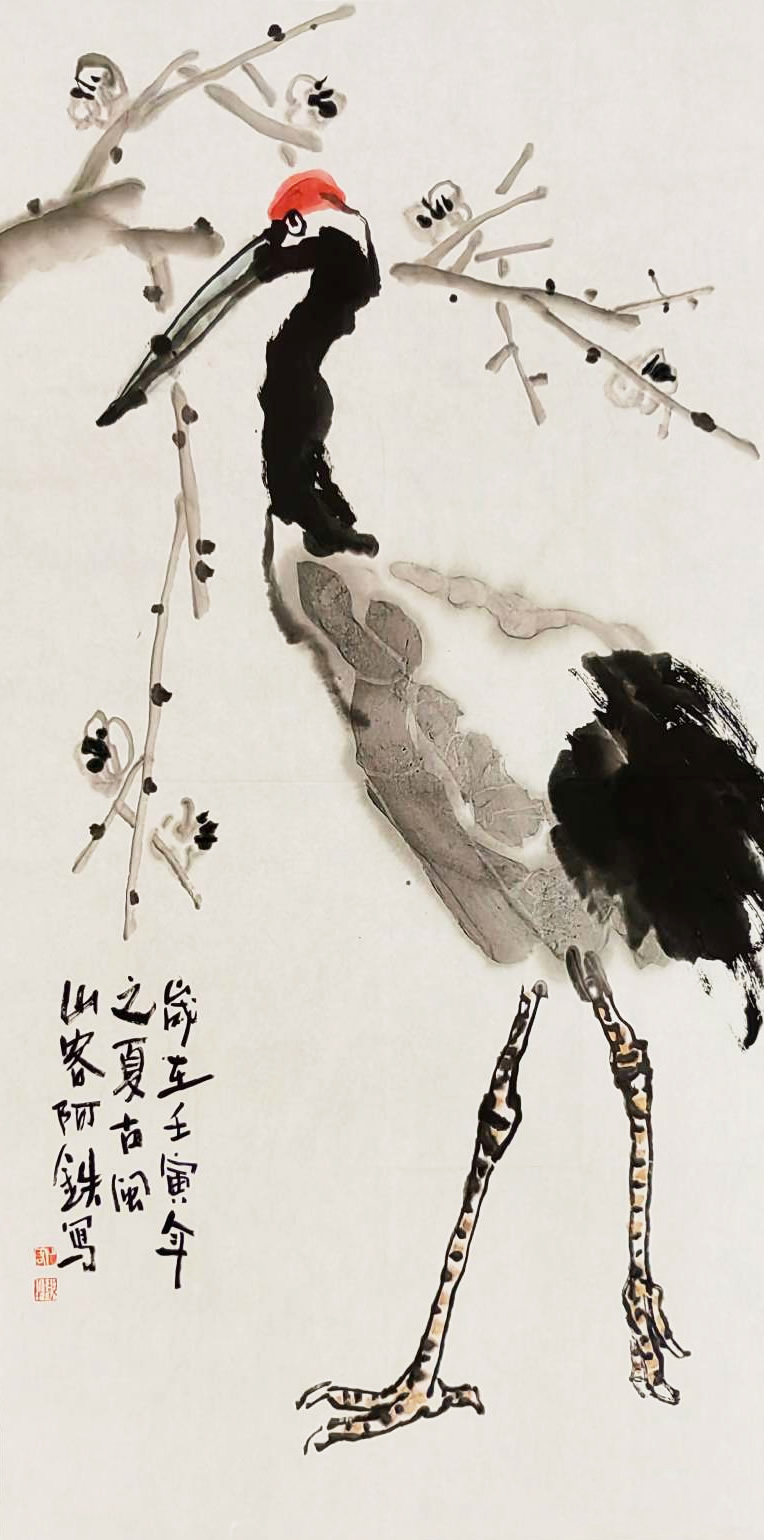 歲在壬寅年
之夏古閩
山客阿鉄写